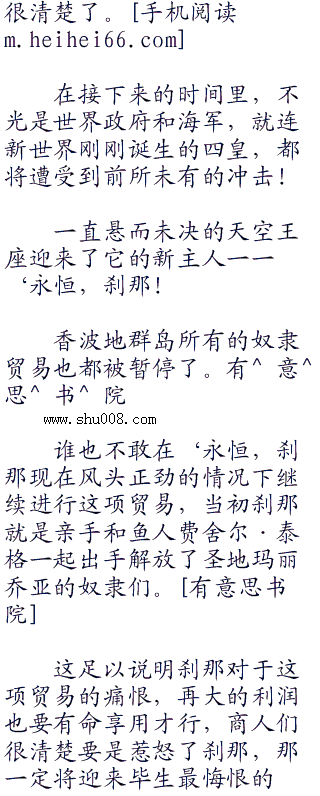 很清楚了。[手机阅读
m.heihei66.com]
在接下来的时间里，不
光是世界政府和海军，就连
新世界刚刚诞生的四皇，都
将遭受到前所未有的冲击！
一直悬而未决的天空王
座迎来了它的新主人一一
‘永恒，刹那！
香波地群岛所有的奴隶
贸易也都被暂停了。有^ 意^
思^ 书^ 院
www.shu008.com
谁也不敢在‘永恒，刹
那现在风头正劲的情况下继
续进行这项贸易，当初刹那
就是亲手和鱼人费舍尔·泰
格一起出手解放了圣地玛丽
乔亚的奴隶们。[有意思书
院]
这足以说明刹那对于这
项贸易的痛恨，再大的利润
也要有命享用才行，商人们
很清楚要是惹怒了刹那，那
一定将迎来毕生最悔恨的